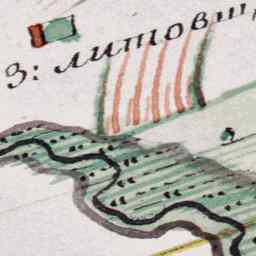 З: литовш